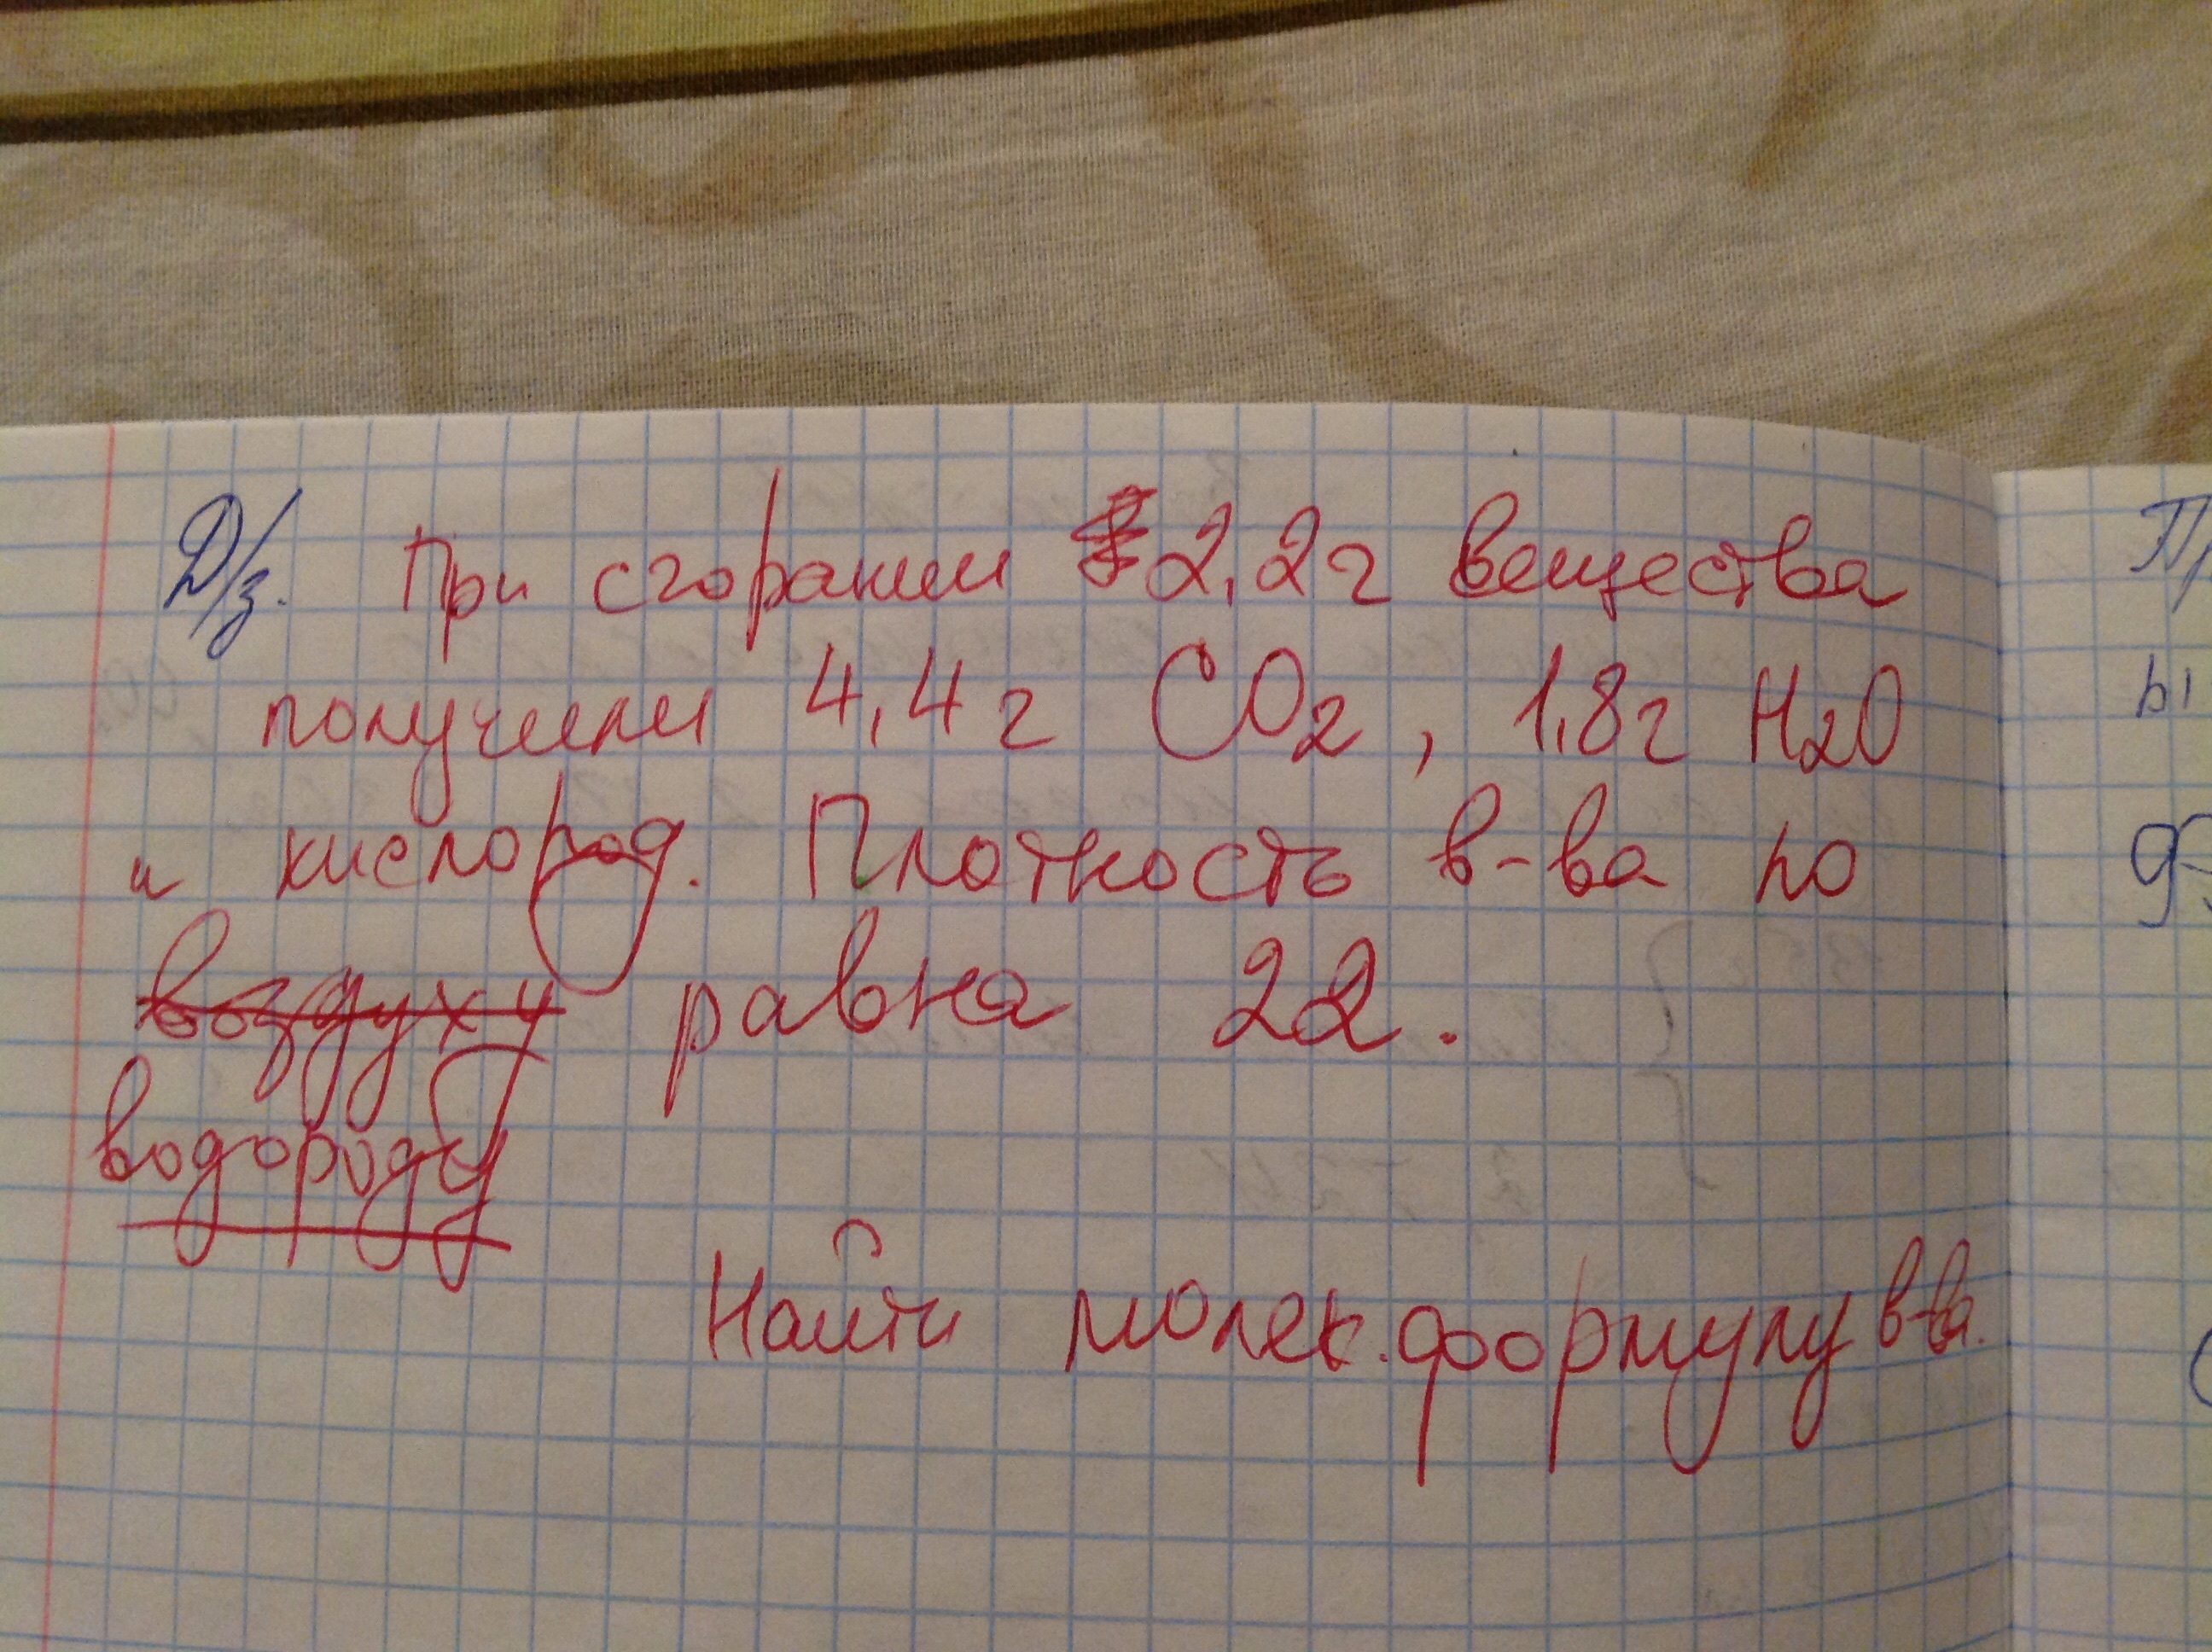 Д/з. При сгорании 2,2г вещества
получили 4,4г CO2, 1,8г H2O
и кислород. Плотность в-ва по
воздуху равна 22.
водороду
Найти молек. формулу в-ва.